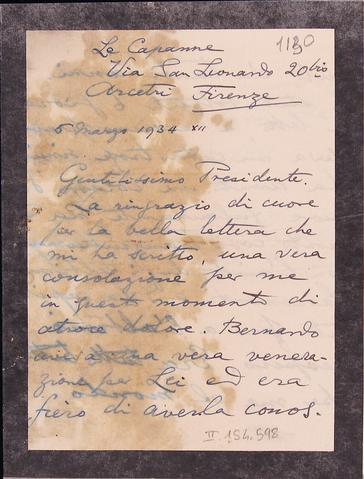 1130
Le Capanne
Via San Leonardo 20 bis
Arcetri Firenze
6 Marzo 1934 XII
Gentilissimo Presidente.
La ringrazio di cuore
per la bella lettera che
mi ha scritto, una vera
consolazione per me
in questi momenti di
atroce dolore. Bernardo
aveva una vera venera-
zione per Lei ed era
fiero di averla conos.
II. 154.598